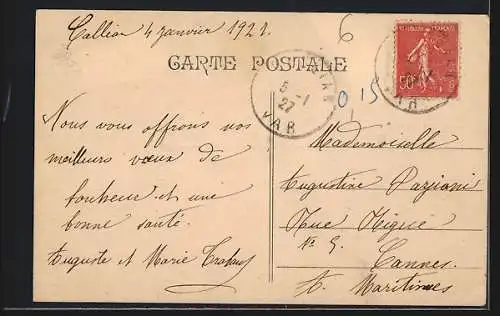 Callian 4 janvier 1927.
6
CARTE POSTALE
5 -1
27
VAR
0 15
50
VAR
Nous vous offrons nos
meilleurs vœux de
bonheur et une
bonne santé.
Auguste et Marie
Mademoiselle
Augustine
Rue
N° 5.
Cannes.
A. Maritimes